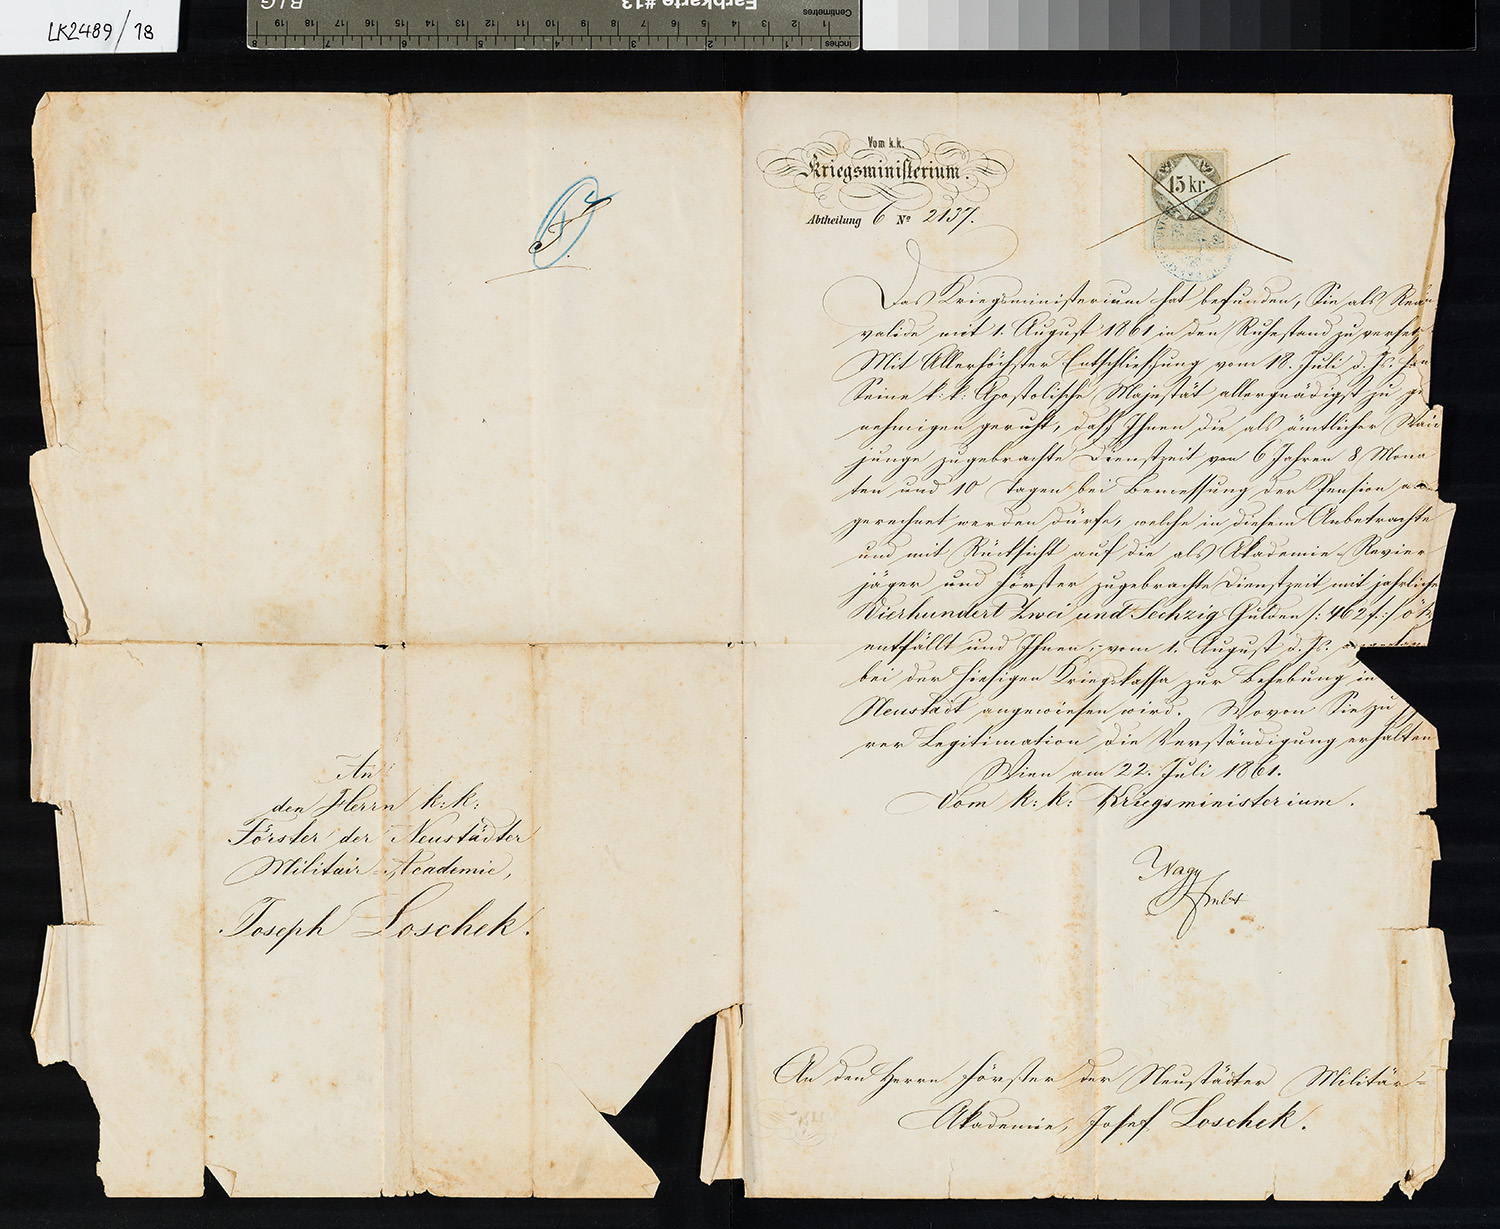 LK2489/18
Farbkarte #13
B.I.G.
Centimetres
Inches
Vom k.k.
Kriegsministerium.
Abtheilung 6 No 2137.
15 kr.
Das Kriegsministerium hat befunden, Sie als Real
valide mit 1. August 1861 in den Ruhestand zu verset
Mit Allerhöchster Entschließung vom 18. Juli d. Js. ha
Seine k: k: Apostolische Majestät allergnädigst zu ge
nehmigen geruht, daß Ihnen die als ämtlicher Waid
junge zugebrachte Dienstzeit von 6 Jahren 8 Mona
ten und 10 Tagen bei Bemessung der Pension
gerechnet werden dürfe, welche in diesem Anbetrachte
und mit Rücksicht auf die als Akademie-Revier
jäger und Förster zugebrachte Dienstzeit mit jährliche
Vierhundert Zwei und Sechzig Gulden /: 462 f :/ ö
entfällt und Ihnen, vom 1. August d. Js.
bei der hiesigen Kriegskassa zur Behebung in
Neustadt angewiesen wird. Wovon Sie zu
rer Legitimation die Verständigung erhalten
Wien am 22. Juli 1861.
Vom k: k: Kriegsministerium.
Nagy
An den Herrn Förster der Neustädter Militär=
Akademie, Josef Loschek.
An
den Herrn k: k:
Förster der Neustädter
Militair-Academie,
Joseph Loschek.